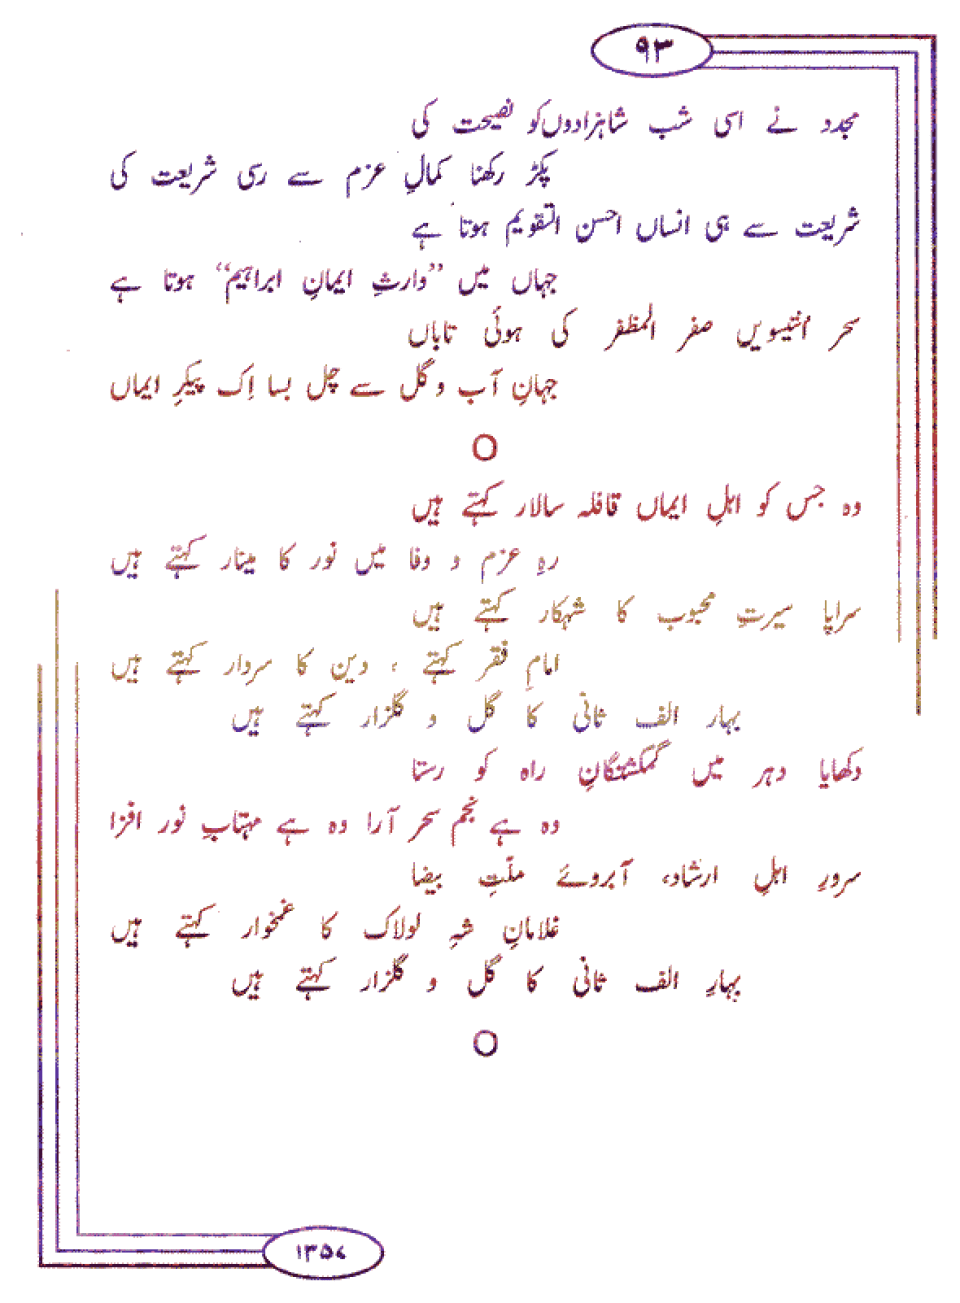 ۹۳
مجدد نے اسی شب شاہزادوں کو نصیحت کی
پکڑ رکھنا کمالِ عزم سے رسی شریعت کی
شریعت سے ہی انساں احسن التقویم ہوتا ہے
جہاں میں ”وارثِ ایمانِ ابراہیم“ ہوتا ہے
سحر اُنتیسویں صفر المظفر کی ہوئی تاباں
جہانِ آب و گل سے چل بسا اِک پیکرِ ایماں
O
وہ جس کو اہلِ ایماں قافلہ سالار کہتے ہیں
رہِ عزم و وفا میں نور کا مینار کہتے ہیں
سراپا سیرتِ محبوب کا شہکار کہتے ہیں
امامِ فقر کہتے ، دین کا سردار کہتے ہیں
بہار الف ثانی کا گل و گلزار کہتے ہیں
دکھایا دہر میں گمگشتگانِ راہ کو رستا
وہ ہے نجم سحر آرا وہ ہے مہتابِ نور افزا
سرورِ اہلِ ارشاد، آبروئے ملّتِ بیضا
غلامانِ شہِ لولاک کا غمخوار کہتے ہیں
بہارِ الف ثانی کا گل و گلزار کہتے ہیں
O
۱۳۵۷